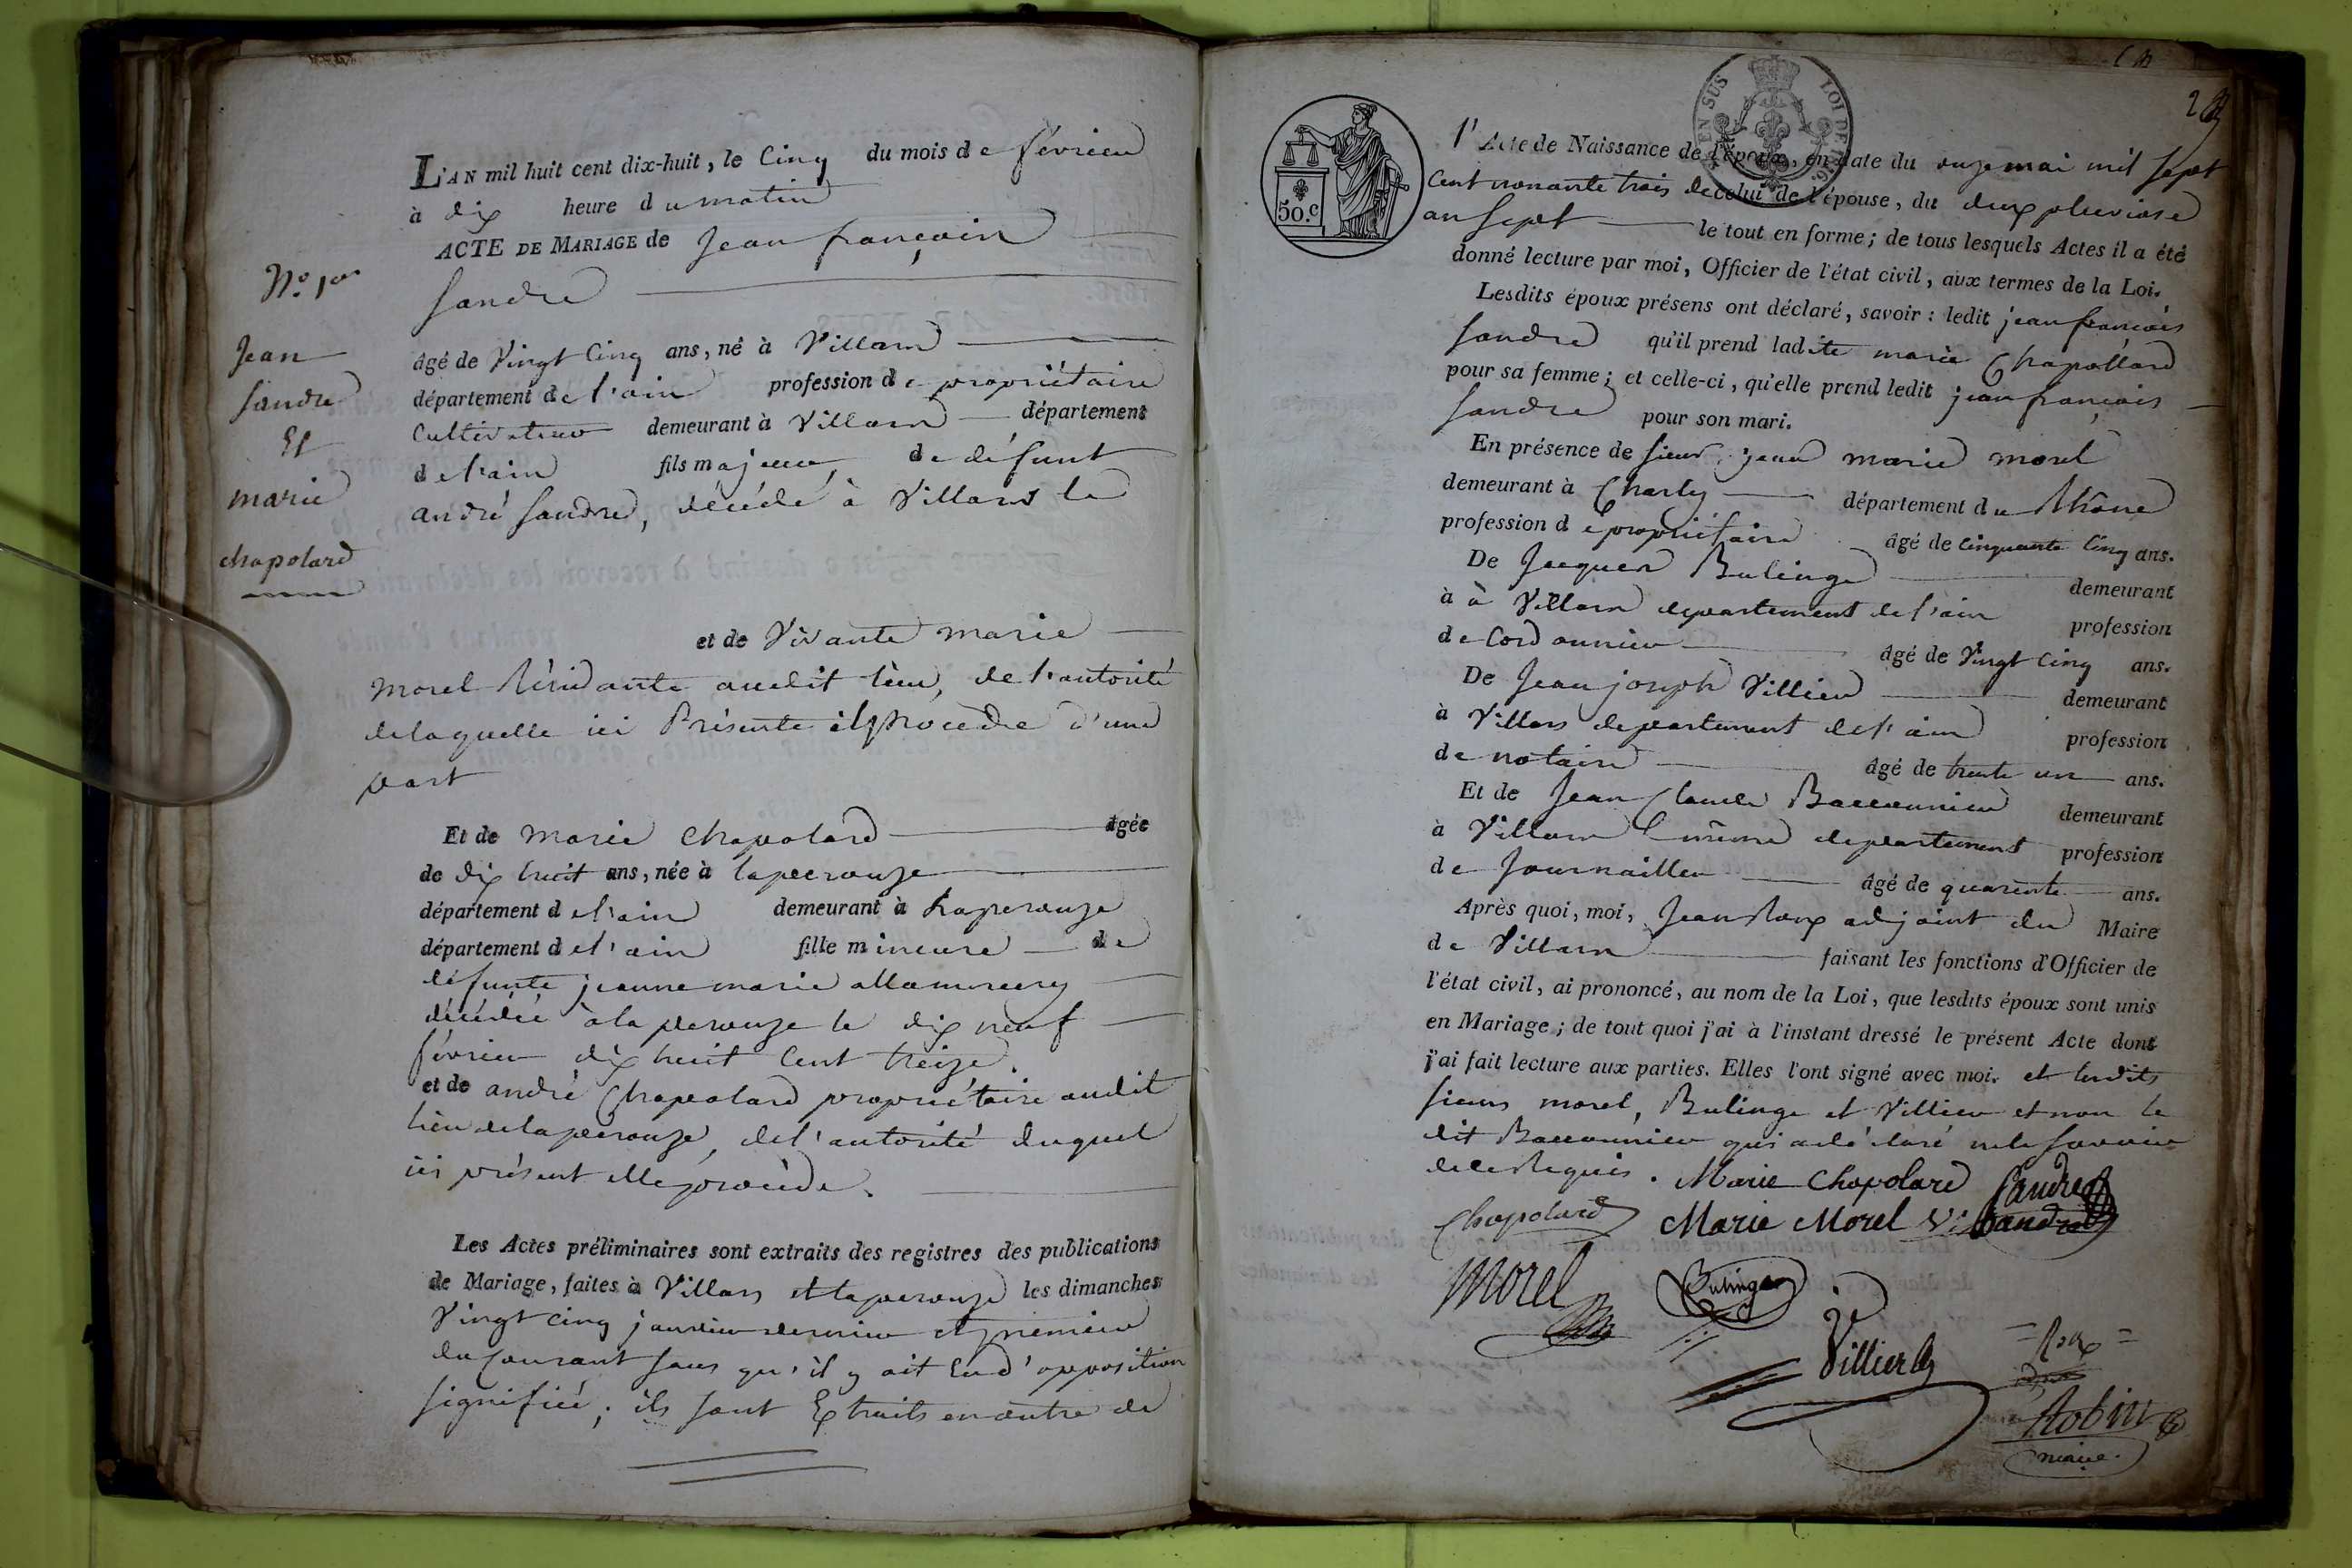 L'AN mil huit cent dix-huit, le Cinq du mois de février
à dix heure du matin
ACTE DE MARIAGE de Jean françois
Sandre
N.º 1er
Jean
Sandre
Et
marie
chapolard
âgé de Vingt Cinq ans, né à Villars
département de l'ain profession de propriétaire
Cultivateur demeurant à Villars département
de l'ain fils majeur de défunt
andré Sandre, décédé à Villars le
et de Vivante marie
morel Résidante audit lieu, de l'autorité
de laquelle ici Présente il procède d'une
part
Et de marie chapolard âgée
de dix huit ans, née à lapeerouze
département de l'ain demeurant à Laperouze
département de l'ain fille mineure de
défunte jeanne marie
décédée à la perouze le dix neuf
février dix huit Cent treize.
et de andré Chapolard propriétaire audit
lieu de laperouze, de l'autorité duquel
ici présent elle procède.
Les Actes préliminaires sont extraits des registres des publications
de Mariage, faites à Villars et laperouze les dimanches
Vingt Cinq janvier dernier et premier
du Courant sans qu'il y ait Eu d'opposition
signifiée; ils sont Extraits en outre de
EN SUS LOI DE
50.c
l'Acte de Naissance de l'époux, en date du onze mai mil sept
Cent nonante trois de celui de l'épouse, du deux pluviose
an Sept le tout en forme; de tous lesquels Actes il a été
donné lecture par moi, Officier de l'état civil, aux termes de la Loi.
Lesdits époux présens ont déclaré, savoir: ledit jean françois
Sandre qu'il prend ladite marie Chapollard
pour sa femme; et celle-ci, qu'elle prend ledit jean françois
Sandre pour son mari.
En présence de Sieur jean marie morel
demeurant à Charly département du Rhône
profession de propriétaire âgé de cinquante Cinq ans.
De Jacques Bulinge demeurant
à à Villars département de l'ain profession
de Cordonnier âgé de Vingt Cinq ans.
De Jean joseph Villier demeurant
à Villars departement de l'ain profession
de notaire âgé de trente un ans.
Et de Jean Claude Bacconnier demeurant
à Villars même département profession
de Journaillier âgé de quarente ans.
Après quoi, moi, Jean Roux adjoint du Maire
de Villars faisant les fonctions d'Officier de
l'état civil, ai prononcé, au nom de la Loi, que lesdits époux sont unis
en Mariage; de tout quoi j'ai à l'instant dressé le présent Acte dont
j'ai fait lecture aux parties. Elles l'ont signé avec moi. et lesdits
sieurs morel, Bulinge et Villier et non le
dit Bacconnier qui a déclaré ne le savoir
de ce Requis. Marie Chapolard Sandre
Chapolard Marie Morel Ve Sandre
Morel Bulinge
Villier
Roux
Robin
maire.